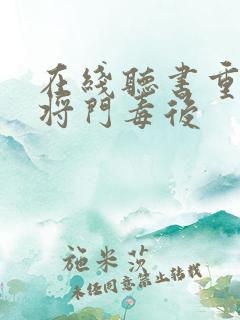 在綫聽書重
将門毒後
施米莎
未经同意禁止转载